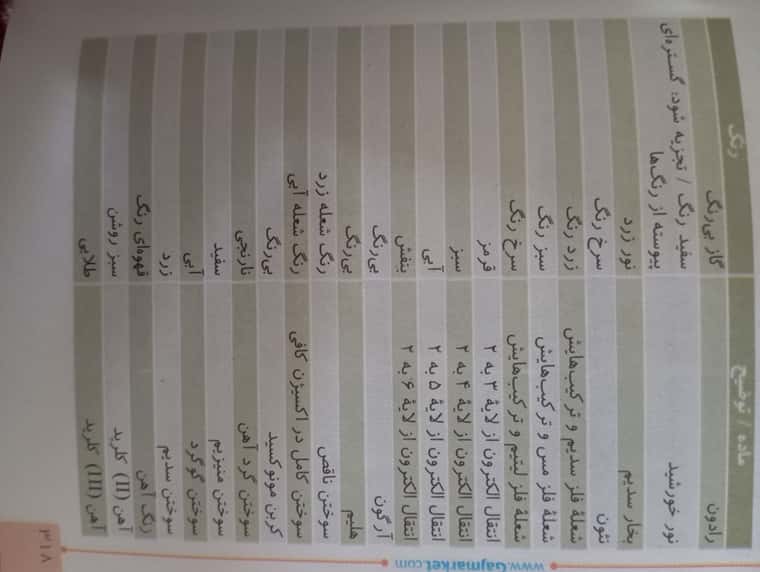 ماده / توضیح	رنگ
رادون	گاز بی‌رنگ
نور خورشید	سفید رنگ / تجزیه شود: گستره‌ای
پیوسته از رنگ‌ها
بخار سدیم	نور زرد
نئون	سرخ رنگ
شعلهٔ فلز سدیم و ترکیب‌هایش	زرد رنگ
شعلهٔ فلز مس و ترکیب‌هایش	سبز رنگ
شعلهٔ فلز لیتیم و ترکیب‌هایش	سرخ رنگ
انتقال الکترون از لایهٔ ۳ به ۲	قرمز
انتقال الکترون از لایهٔ ۴ به ۲	سبز
انتقال الکترون از لایهٔ ۵ به ۲	آبی
انتقال الکترون از لایهٔ ۶ به ۲	بنفش
آرگون	بی‌رنگ
هلیم	بی‌رنگ
سوختن ناقص	رنگ شعله زرد
سوختن کامل در اکسیژن کافی	رنگ شعله آبی
کربن مونوکسید	بی‌رنگ
سوختن گرد آهن	نارنجی
سوختن منیزیم	سفید
سوختن گوگرد	آبی
سوختن سدیم	زرد
زنگ آهن	قهوه‌ای رنگ
آهن (II) کلرید	سبز روشن
آهن (III) کلرید	طلایی
www.Gajmarket.com
۳۱۸